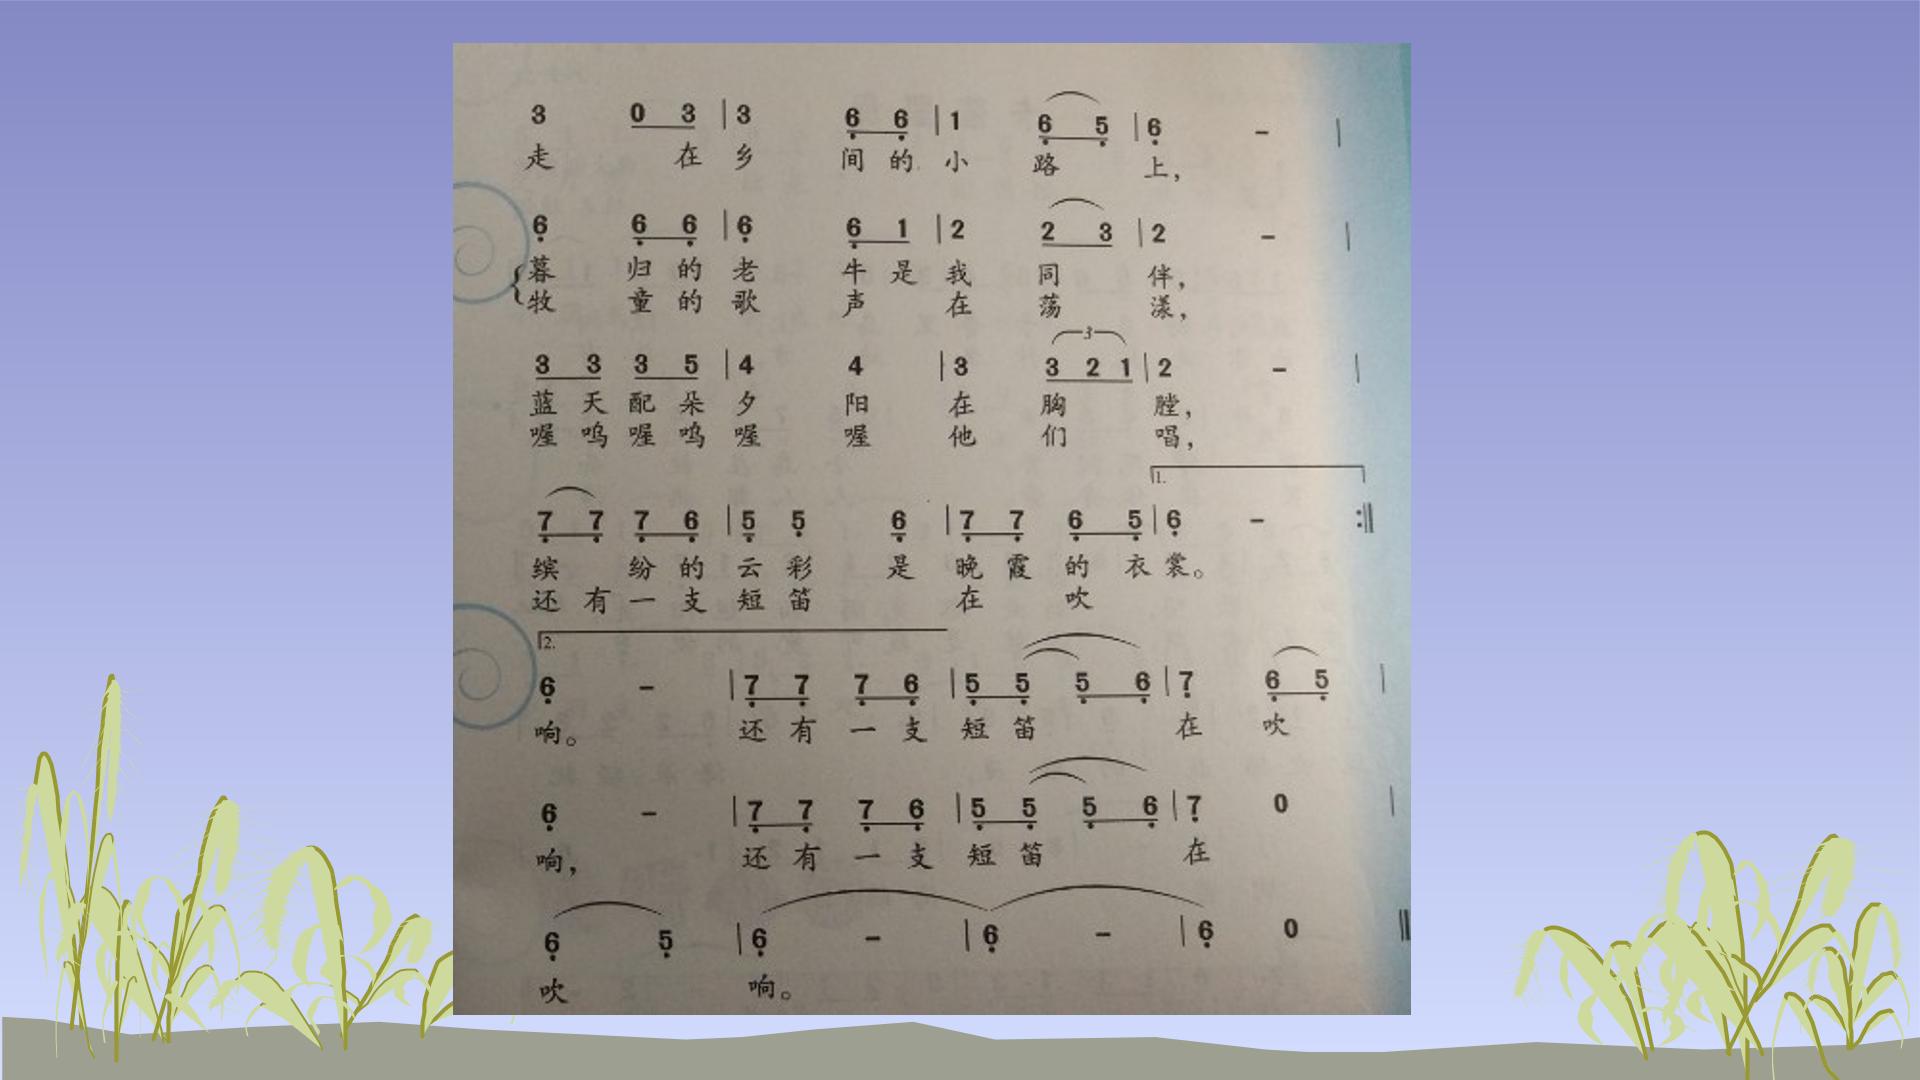 3 0 3 | 3 6 6 | 1 6 5 | 6 - |
走 在 乡 间 的 小 路 上,
6 6 6 | 6 6 1 | 2 2 3 | 2 - |
暮 归 的 老 牛 是 我 同 伴,
牧 童 的 歌 声 在 荡 漾,
3
3 3 3 5 | 4 4 | 3 3 2 1 | 2 - |
蓝 天 配 朵 夕 阳 在 胸 膛,
喔 呜 喔 呜 喔 喔 他 们 唱,
1.
7 7 7 6 | 5 5 6 | 7 7 6 5 | 6 - :‖
缤 纷 的 云 彩 是 晚 霞 的 衣 裳。
还 有 一 支 短 笛 在 吹
2.
6 - | 7 7 7 6 | 5 5 5 6 | 7 6 5 |
响。 还 有 一 支 短 笛 在 吹
6 - | 7 7 7 6 | 5 5 5 6 | 7 0 |
响, 还 有 一 支 短 笛 在
6 5 | 6 - | 6 - | 6 0 ‖
吹 响。